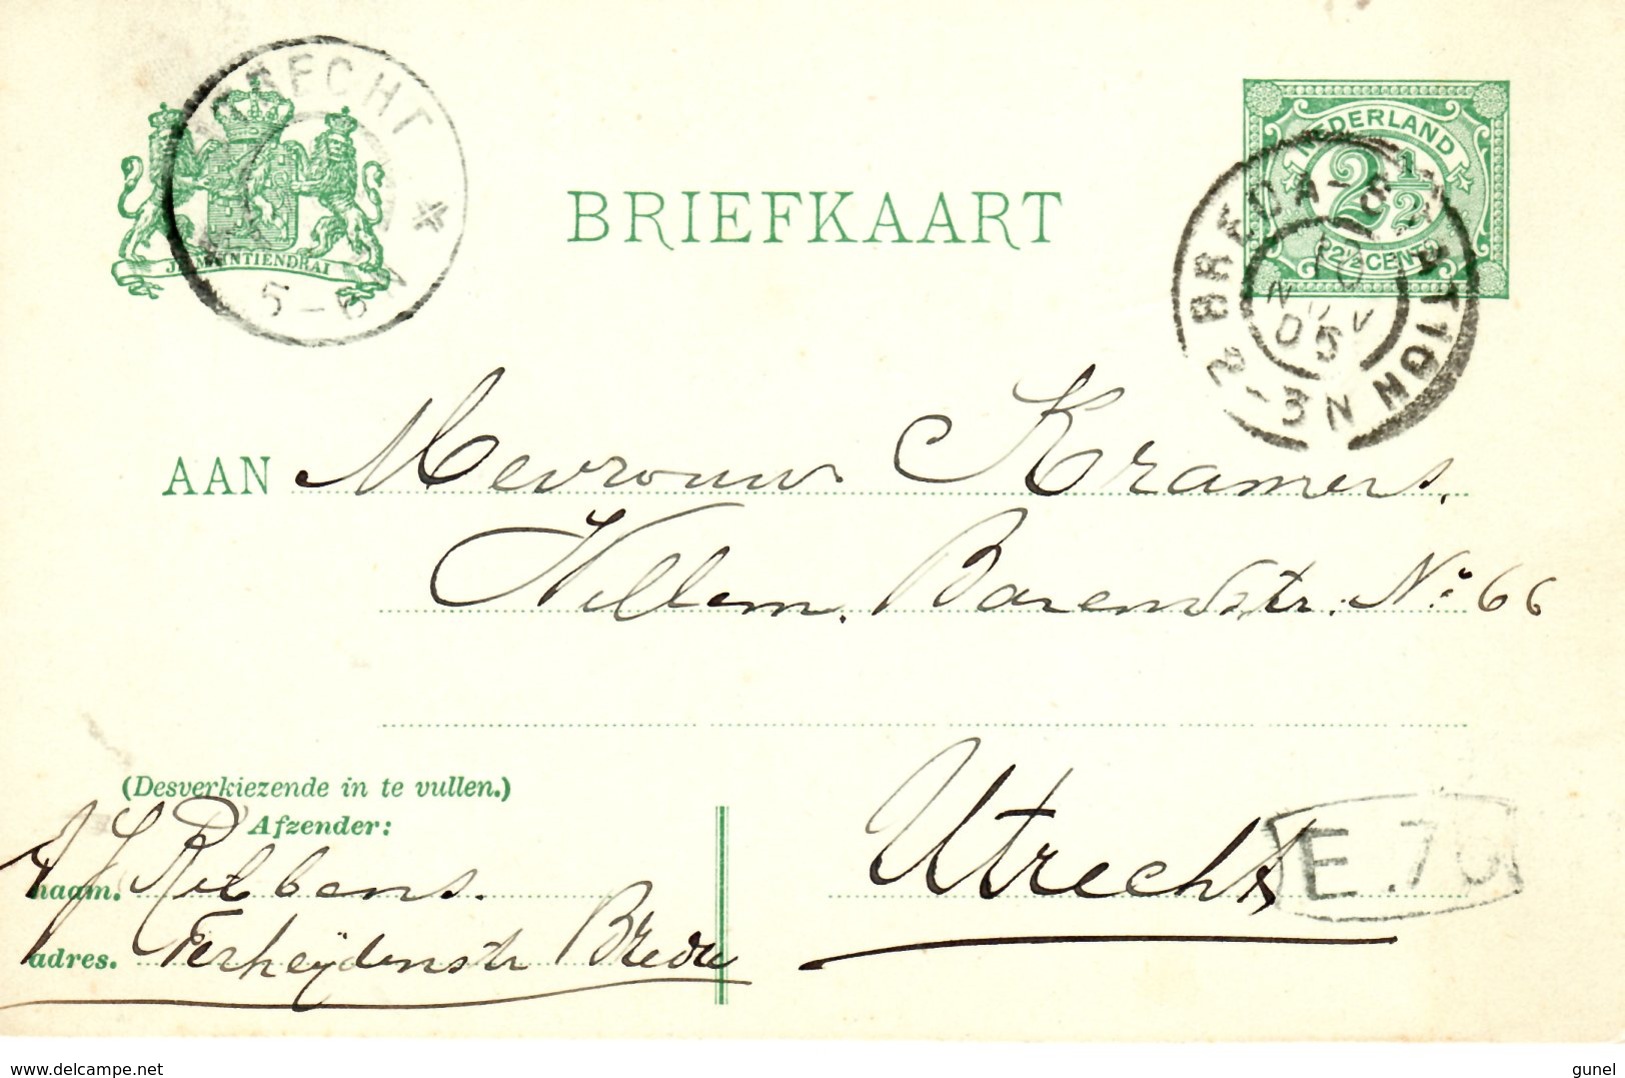 UTRECHT
5-6N
JE MAINTIENDRAI
BRIEFKAART
NEDERLAND
2 1/2
2 1/2 CENT
BREDA-STATION
10
NOV
05
2-3N
AAN Mevrouw Kramers.
Willem Barendstr. No 66
Utrecht
E.70
(Desverkiezende in te vullen.)
Afzender:
naam. Ribbens.
adres. Terheijdenstr Breda
delcampe.net
gunel